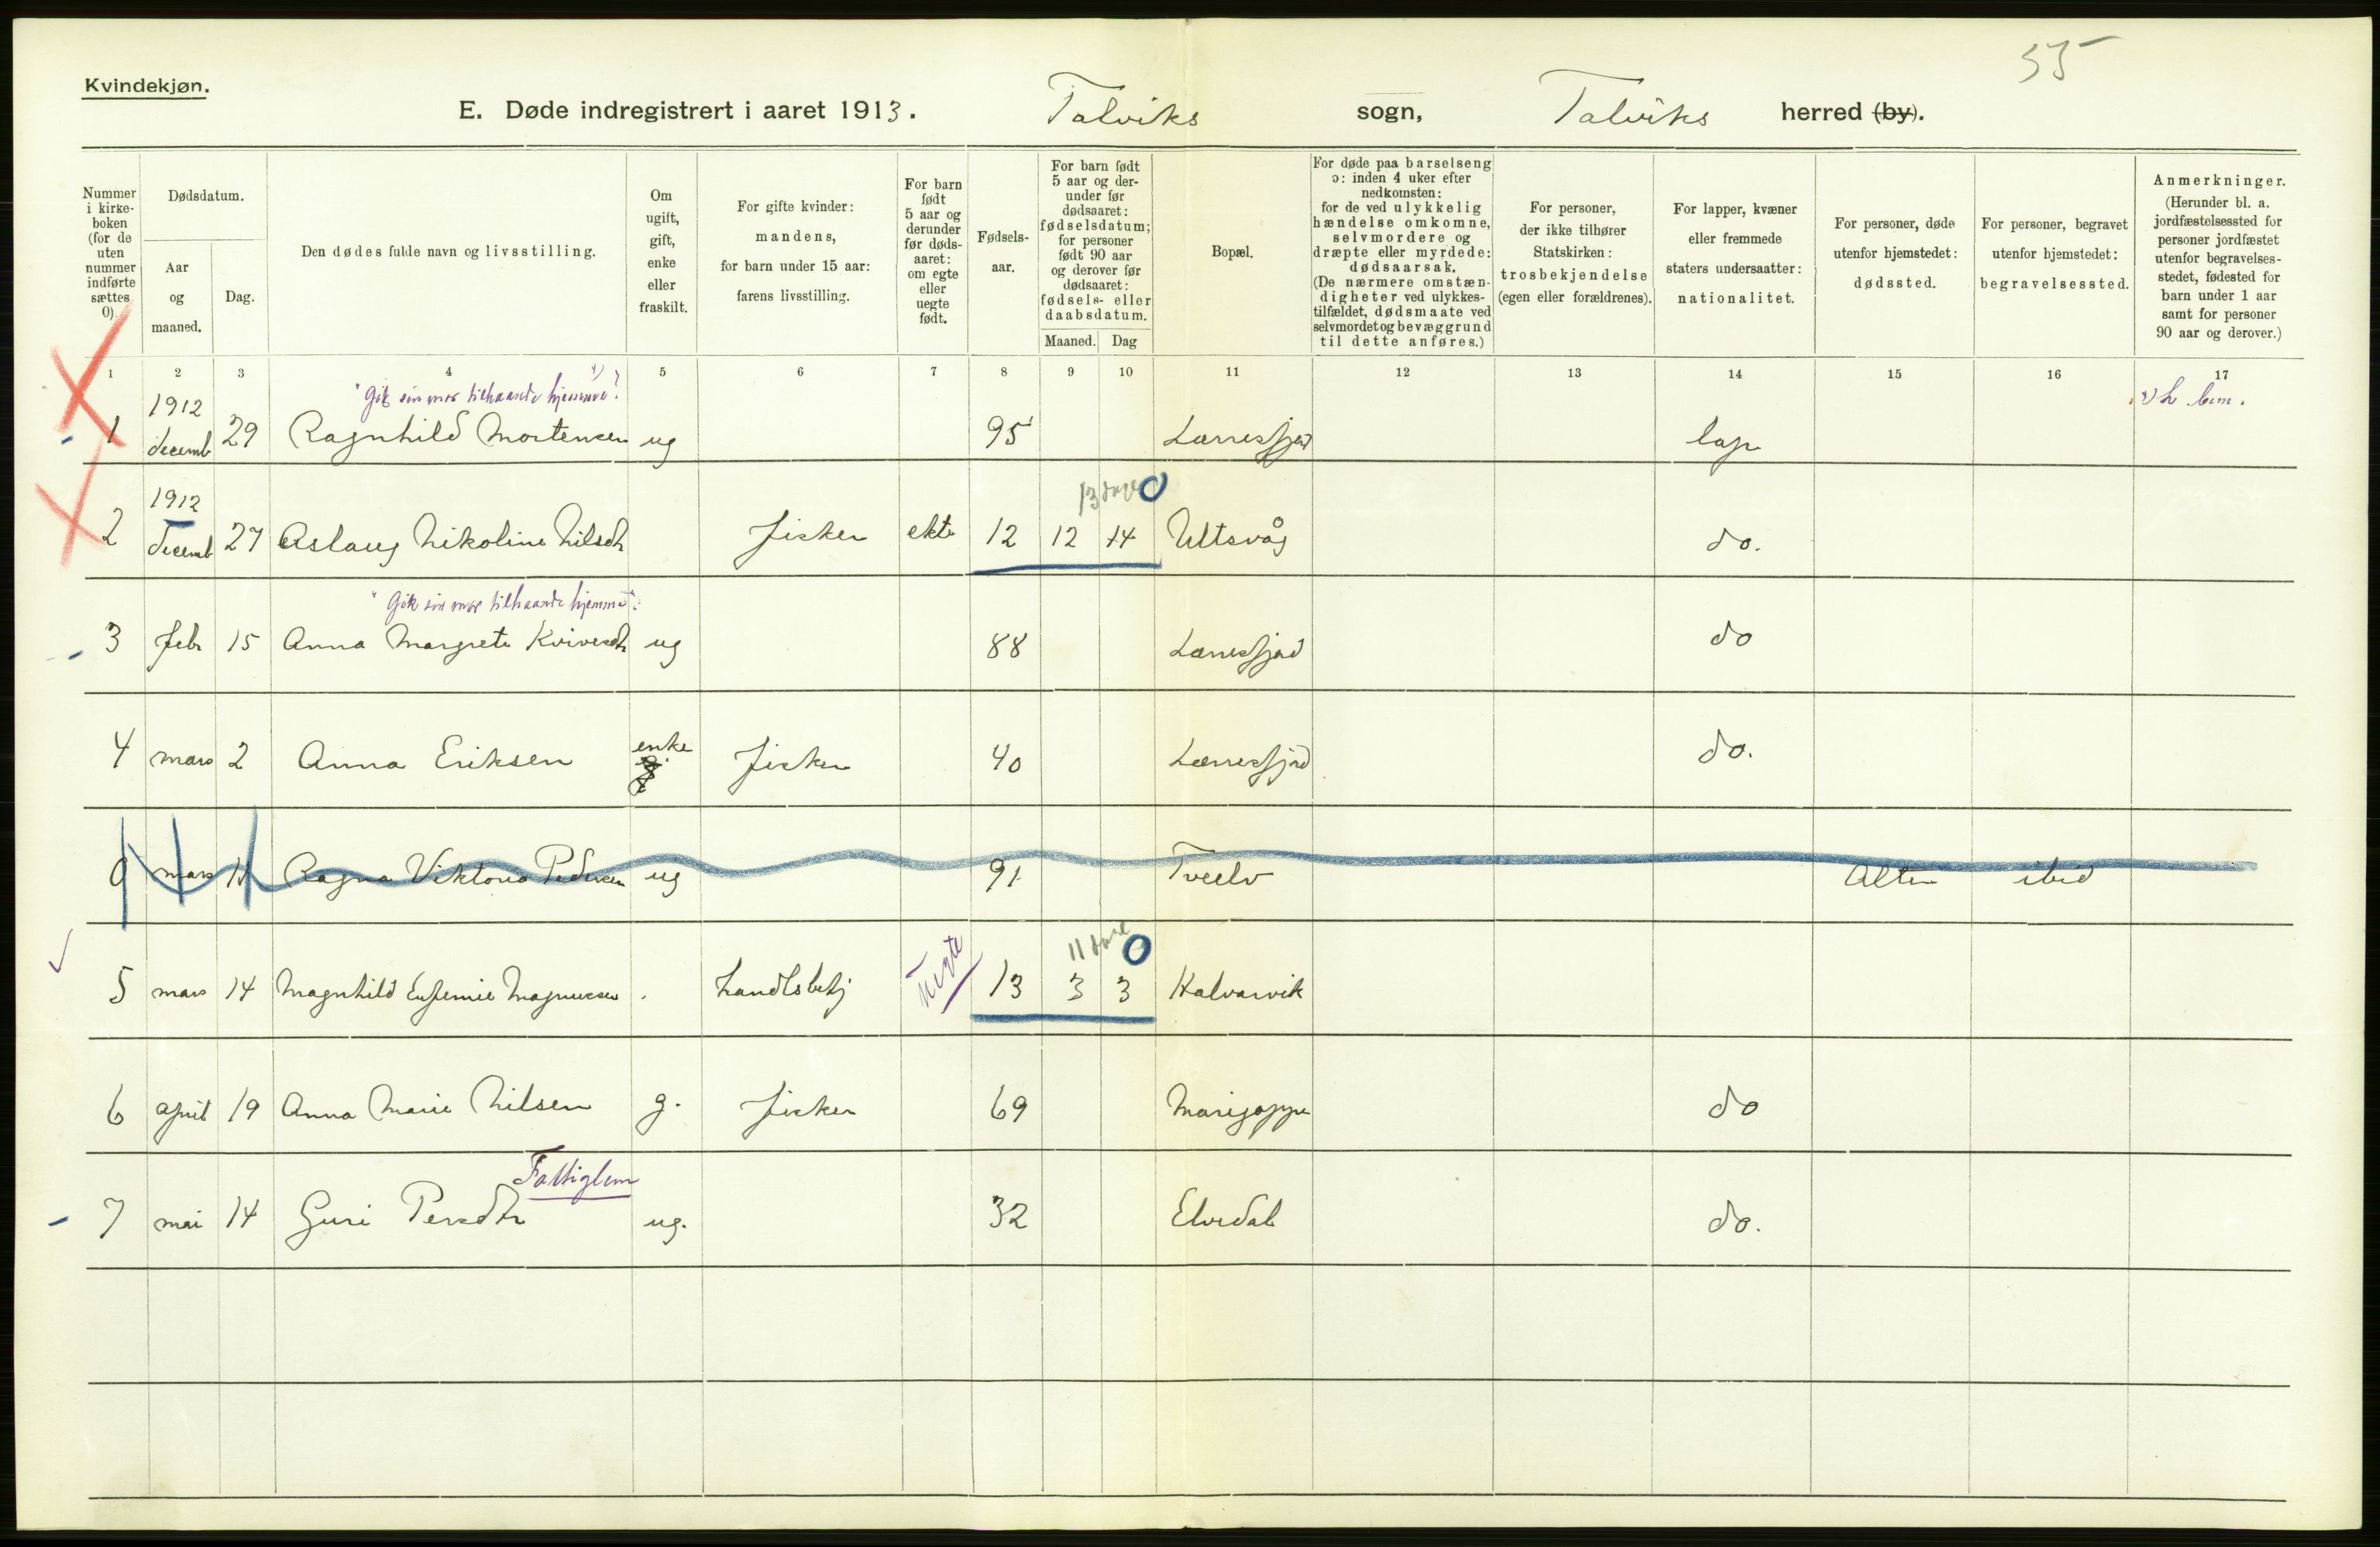 Kvindekjøn.
35
E. Døde indregistrert i aaret 1913. Talviks sogn, Talviks herred (by).
Nummer i kirkeboken (for de uten nummer indførte sættes 0).
Dødsdatum.
Aar og maaned.
Dag.
Den dødes fulde navn og livsstilling.
Om ugift, gift, enke eller fraskilt.
For gifte kvinder: mandens, for barn under 15 aar: farens livsstilling.
For barn født 5 aar og derunder før dødsaaret: om egte eller uegte født.
Fødselsaar.
For barn født 5 aar og derunder før dødsaaret: fødselsdatum; for personer født 90 aar og derover før dødsaaret: fødsels- eller daabsdatum.
Maaned. Dag
Bopæl.
For døde paa barselseng ɔ: inden 4 uker efter nedkomsten: for de ved ulykkelig hændelse omkomne, selvmordere og dræpte eller myrdede: dødsaarsak. (De nærmere omstændigheter ved ulykkestilfældet, dødsmaate ved selvmord et og bevæggrund til dette anføres.)
For personer, der ikke tilhører Statskirken: trosbekjendelse (egen eller forældrenes).
For lapper, kvæner eller fremmede staters undersaatter: nationalitet.
For personer, døde utenfor hjemstedet: dødssted.
For personer, begravet utenfor hjemstedet: begravelsessted.
Anmerkninger. (Herunder bl. a. jordfæstelsessted for personer jordfæstet utenfor begravelsesstedet, fødested for barn under 1 aar samt for personer 90 aar og derover.)
1 2 3 4 5 6 7 8 9 10 11 12 13 14 15 16 17
"Gik sin mor tilhaande hjemme".
1 1912 decemb 29 Ragnhild Mortensen ug 95 Lærresfjord lap
13 dage 0
2 1912 decemb 27 Aslaug Nikoline Nilsdtr fisker ekte 12 12 14 Ultsvåg do.
"Gik sin mor tilhaande hjemme".
3 febr 15 Anna Margrete Kvivesdtr ug 88 Lærresfjord do
4 mars 2 Anna Eriksen enke fisker 40 Lærresfjord do.
0 mars 11 Ragna Viktoria Pedersen ug 91 Tverelv Alten ibid
11 dage 0
5 mars 14 Magnhild Eufemie Magnussen handlsbetj uegte 13 3 3 Halvarvik
6 april 19 Anna Marie Nilsen g. fisker 69 Marigoppe do
Fattiglem
7 mai 14 Guri Persdtr ug. 32 Elvedal do.